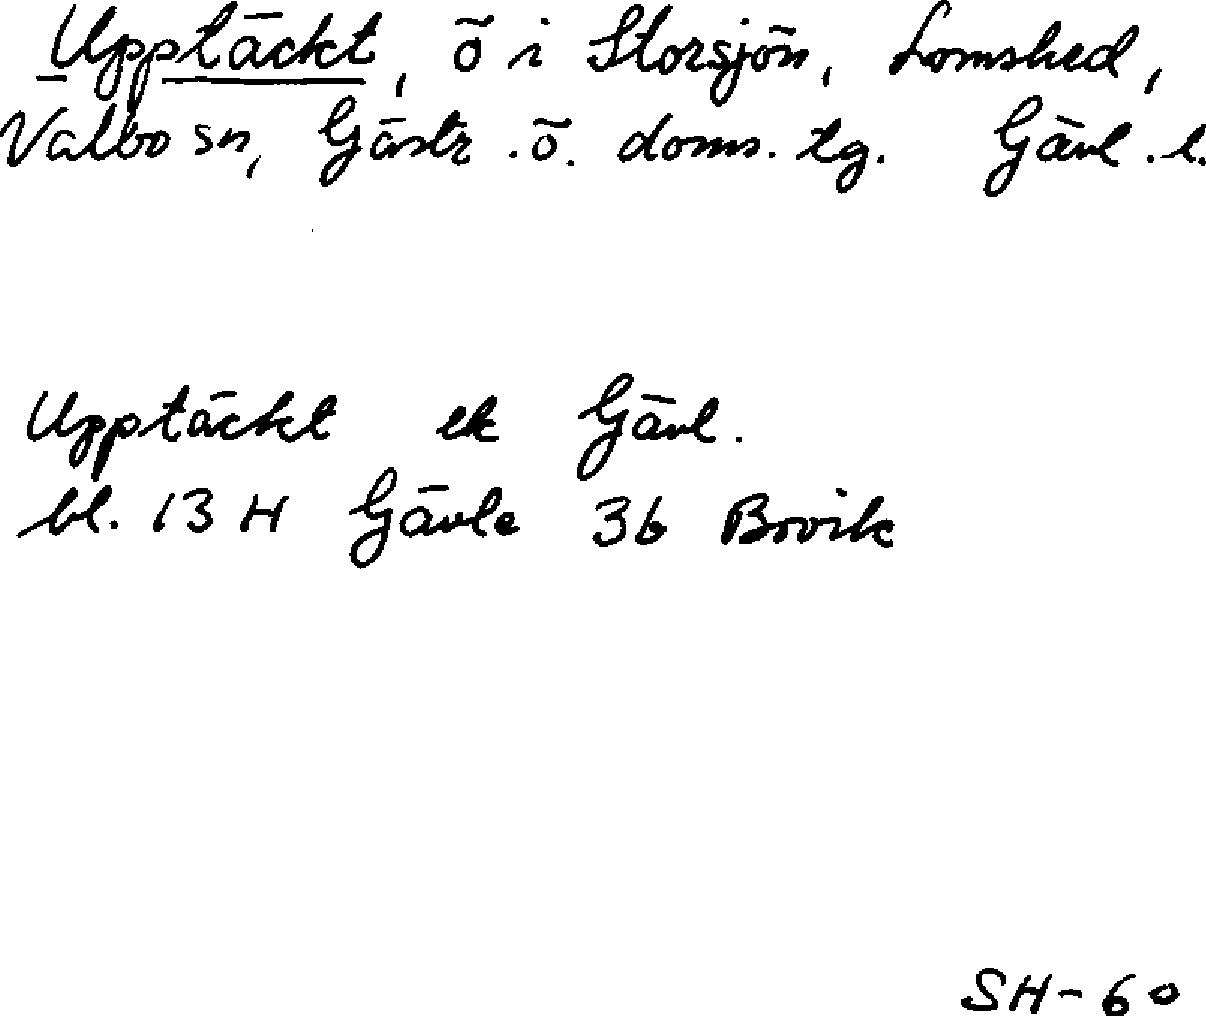 Upptäckt, ö i Storsjön, Lomshed,
Valbo sn, Gästr. ö. doms. tg. Gävl. l.
Upptäckt ek Gävl.
bl. 13 H Gävle 3b Brovik
SH-60